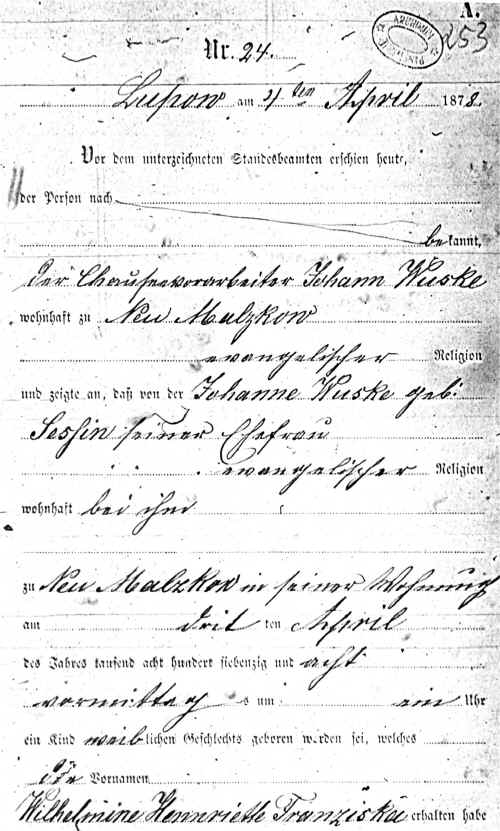 A.
253
Nr. 24.
Lupow am 4 ten April 1878.
Vor dem unterzeichneten Standesbeamten erschien heute,
der Person nach
bekannt,
der Chausseevorarbeiter Johann Wuske
wohnhaft zu Neu Malzkow
evangelischer Religion
und zeigte an, daß von der Johanne Wuske geb:
Seshin seiner Ehefrau
evangelischer Religion
wohnhaft bei ihm
zu Neu Malzkow in seiner Wohnung
am drit ten April
des Jahres tausend acht hundert siebenzig und acht
vormittag s um ein Uhr
ein Kind weiblichen Geschlechts geboren worden sei, welches
die Vornamen
Wilhelmine Hennriette Franziska erhalten habe